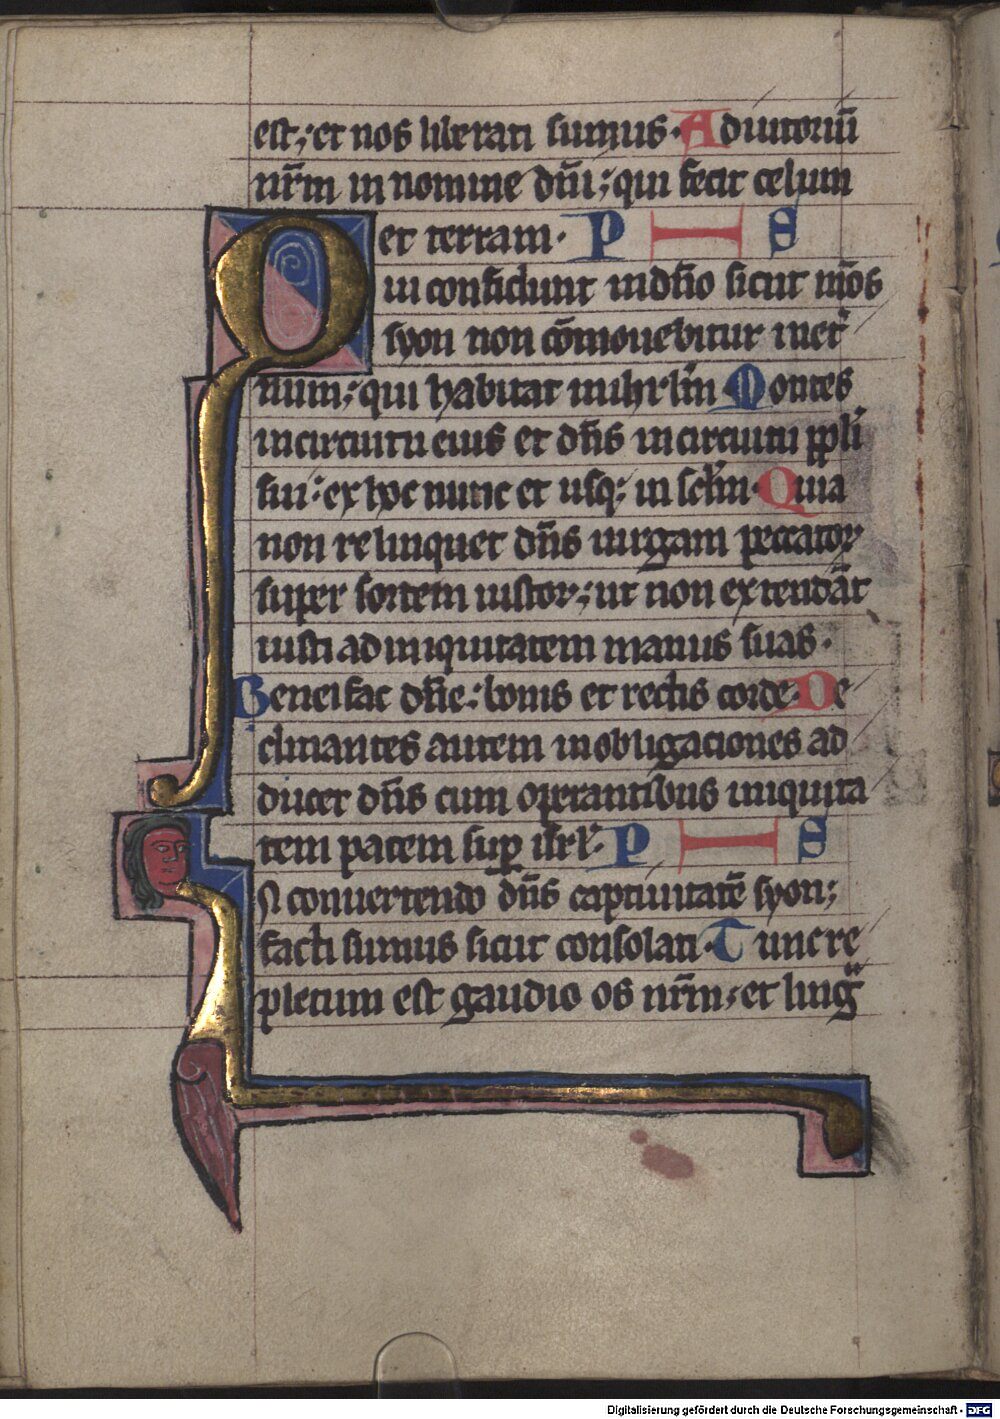 est; et nos liberati sumus. Adiutoriū
nr̄m in nomine dn̄i; qui fecit celum
et terram. P I S
Qui confidunt in dn̄o sicut mōs
syon non cōmouebitur in et̄
num; qui habitat in ihrl̄m Montes
in circuitu eius et dn̄s in circuitu ppl̄i
sui: ex hoc nunc et usq; in sclm̄. Quia
non relinquet dn̄s uirgam peccatoꝝ
super sortem iustoꝝ; ut non extendāt
iusti ad iniquitatem manus suas.
Benefac dn̄e: bonis et rectis corde. De
clinantes autem in obligaciones ad
ducet dn̄s cum operantibus iniquita
tem pacem sup̱ isrl̄. P I S
In conuertendo dn̄s captiuitatē syon;
facti sumus sicut consolati. Tunc re
pletum est gaudio os nr̄m; et ling
Digitalisierung gefördert durch die Deutsche Forschungsgemeinschaft - DFG